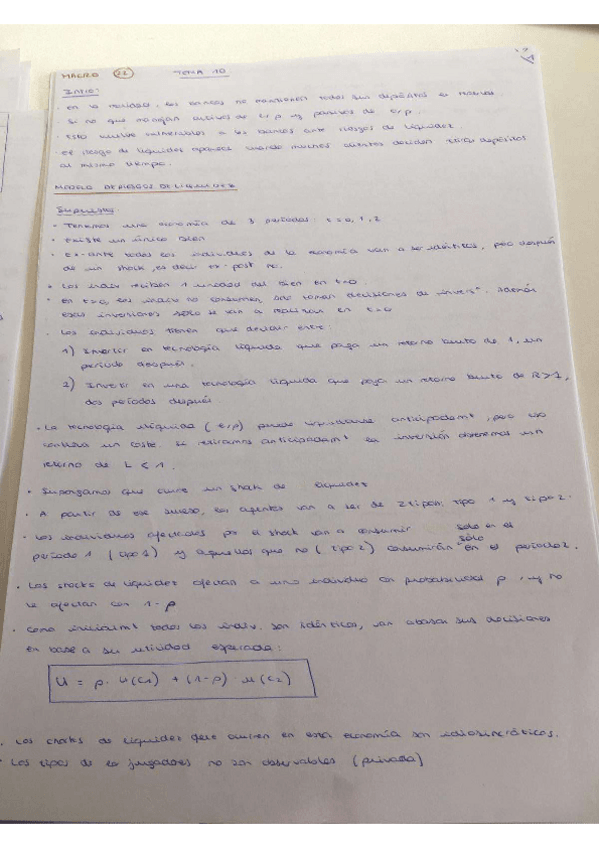 MACRO 22 TEMA 10
Intro:
· En la realidad, los bancos no mantienen todos sus depósitos en
· Si no que manejan activos de l/p y pasivos de c/p.
· Esto vuelve vulnerables a los bancos ante riesgos de liquidez.
· El riesgo de liquidez aparece cuando muchos clientes deciden retirar depósitos
al mismo tiempo.
MODELO DE RIESGOS DE LIQUIDEZ
Supuestos:
· Tenemos una economía de 3 períodos: t=0, 1, 2
· Existe un único bien
· Ex-ante todos los individuos de la economía van a ser idénticos, pero después
de un shock, es decir ex-post no.
· Los indiv reciben 1 unidad del bien en t=0.
· En t=0, los indiv no consumen, solo toman decisiones de inversº. Además
esas inversiones sólo se van a realizar en t=0
· Los individuos tienen que decidir entre:
1) Invertir en tecnología líquida que paga un retorno bruto de 1, un
período después.
2) Invertir en una tecnología ilíquida que paga un retorno bruto de R>1,
dos períodos después.
· La tecnología ilíquida (l/p) puede liquidarse anticipadamt, pero eso
conlleva un coste. Si retiramos anticipadamt la inversión obtenemos un
retorno de L<1.
· Supongamos que ocurre un shock de liquidez
· A partir de ese suceso, los agentes van a ser de 2 tipos: tipo 1 y tipo 2.
· Los individuos afectados por el shock van a consumir sólo en el
período 1 (tipo 1) y aquellos que no (tipo 2) consumirán sólo en el período 2.
· Los shocks de liquidez afectan a un individuo con probabilidad p, y no
le afectan con 1-p
· Como inicialmt todos los indiv. son idénticos, van a basar sus decisiones
en base a su utilidad esperada:
U = p · u(c1) + (1-p) · u(c2)
· Los shocks de liquidez que ocurren en esta economía son idiosincráticos.
· Los tipos de los jugadores no son observables (privada)